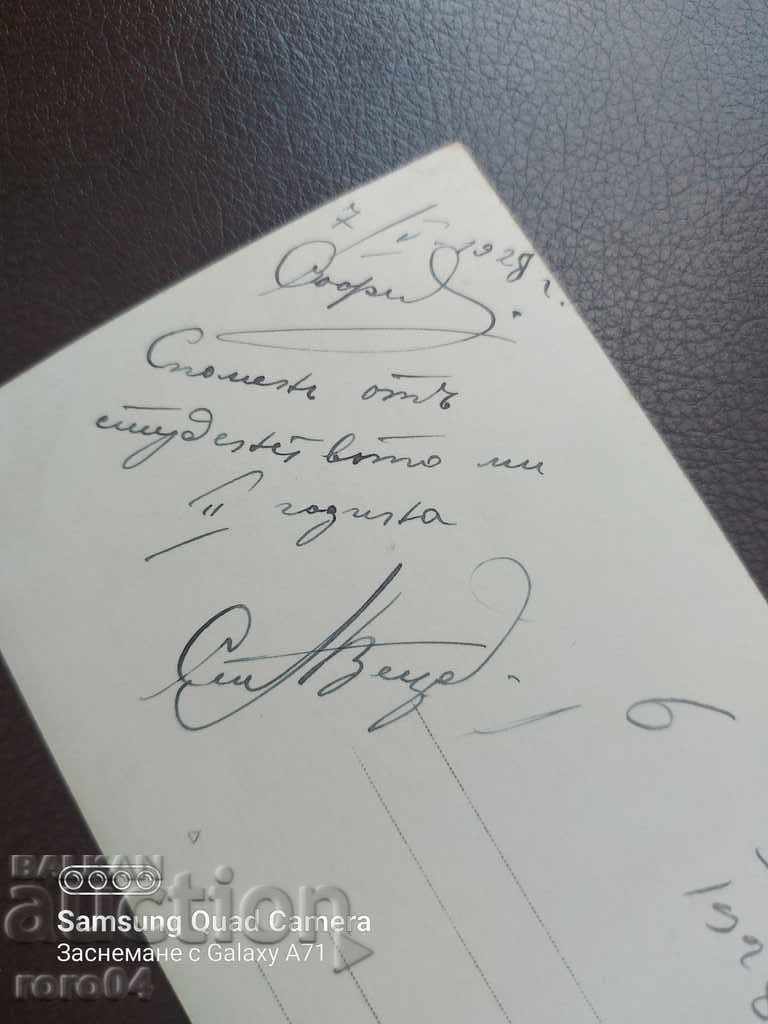 7/II 1928 г.
София.
Споменъ отъ
студентството ми
II година
6
192
BALKAN
auction
Samsung Quad Camera
Заснемане с Galaxy A71
roro04